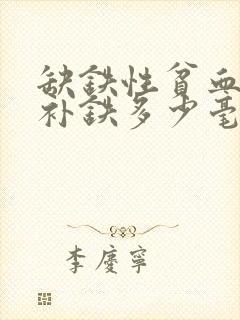 缺鉄性貧血
补鉄多少毫
李慶寧